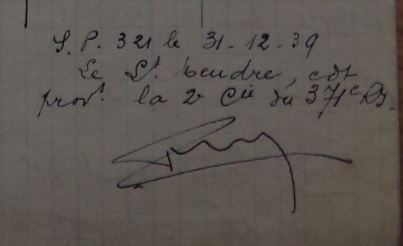 S. P. 321 le 31-12-39
Le Lt. Leudre, cdt
provt. la 2e Cie du 371e RI.